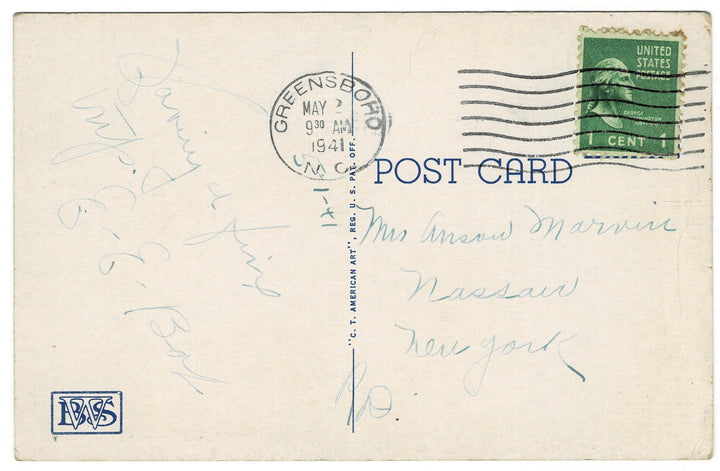 UNITED
STATES
POSTAGE
GEORGE
WASHINGTON
1 CENT 1
GREENSBORO
MAY 2
9 30 AM
1941
N.C.
POST CARD
"C. T. AMERICAN ART", REG. U. S. PAT. OFF.
1-41
Having a fine
Mrs. C. E. Bat
Mrs Anson Marvin
Nassau
New York
RD
BWS